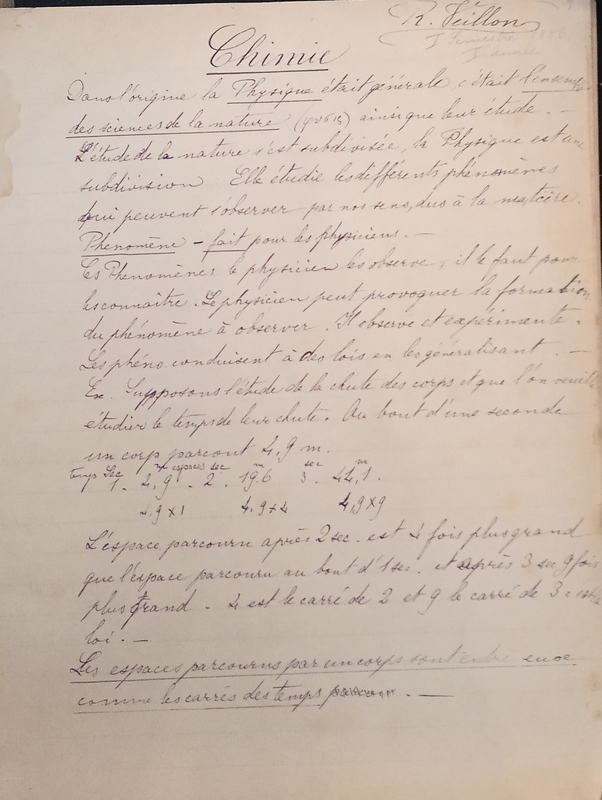 R. Veillon
I Semestre 1886
I année
Chimie
Dans l'origine la Physique était générale, c'était l'ensemble
des sciences de la nature (φυσις) ainsi que leur étude. —
L'étude de la nature s'est subdivisée, la Physique est une
subdivision Elle étudie les différents phénomènes
qui peuvent s'observer par nos sens, dus à la matière.
Phénomène - fait pour les physiciens. —
Les Phenomènes le physicien les observe, il le faut pour
les connaître. Le physicien peut provoquer la formation
du phénomène à observer. Il observe et expérimente.
Les phéno. conduisent à des lois en les généralisant. —
Ex. Supposons l'étude de la chute des corps et que l'on veuille
étudier le temps de leur chute. Au bout d'une seconde
un corp parcourt 4,9 m.
temps Sec m espaces sec m sec m
1. 4,9. 2. 19.6 3. 44,1.
4,9 x 1 4.9 x 4 4,9 x 9
L'espace parcouru après 2 sec. est 4 fois plus grand
que l'espace parcouru au bout d'1 sec. et après 3 sec 9 fois
plus grand. 4 est le carré de 2 et 9 le carré de 3 c'est la
loi. —
Les espaces parcourus par un corps sont entre eux
comme les carrés des temps —